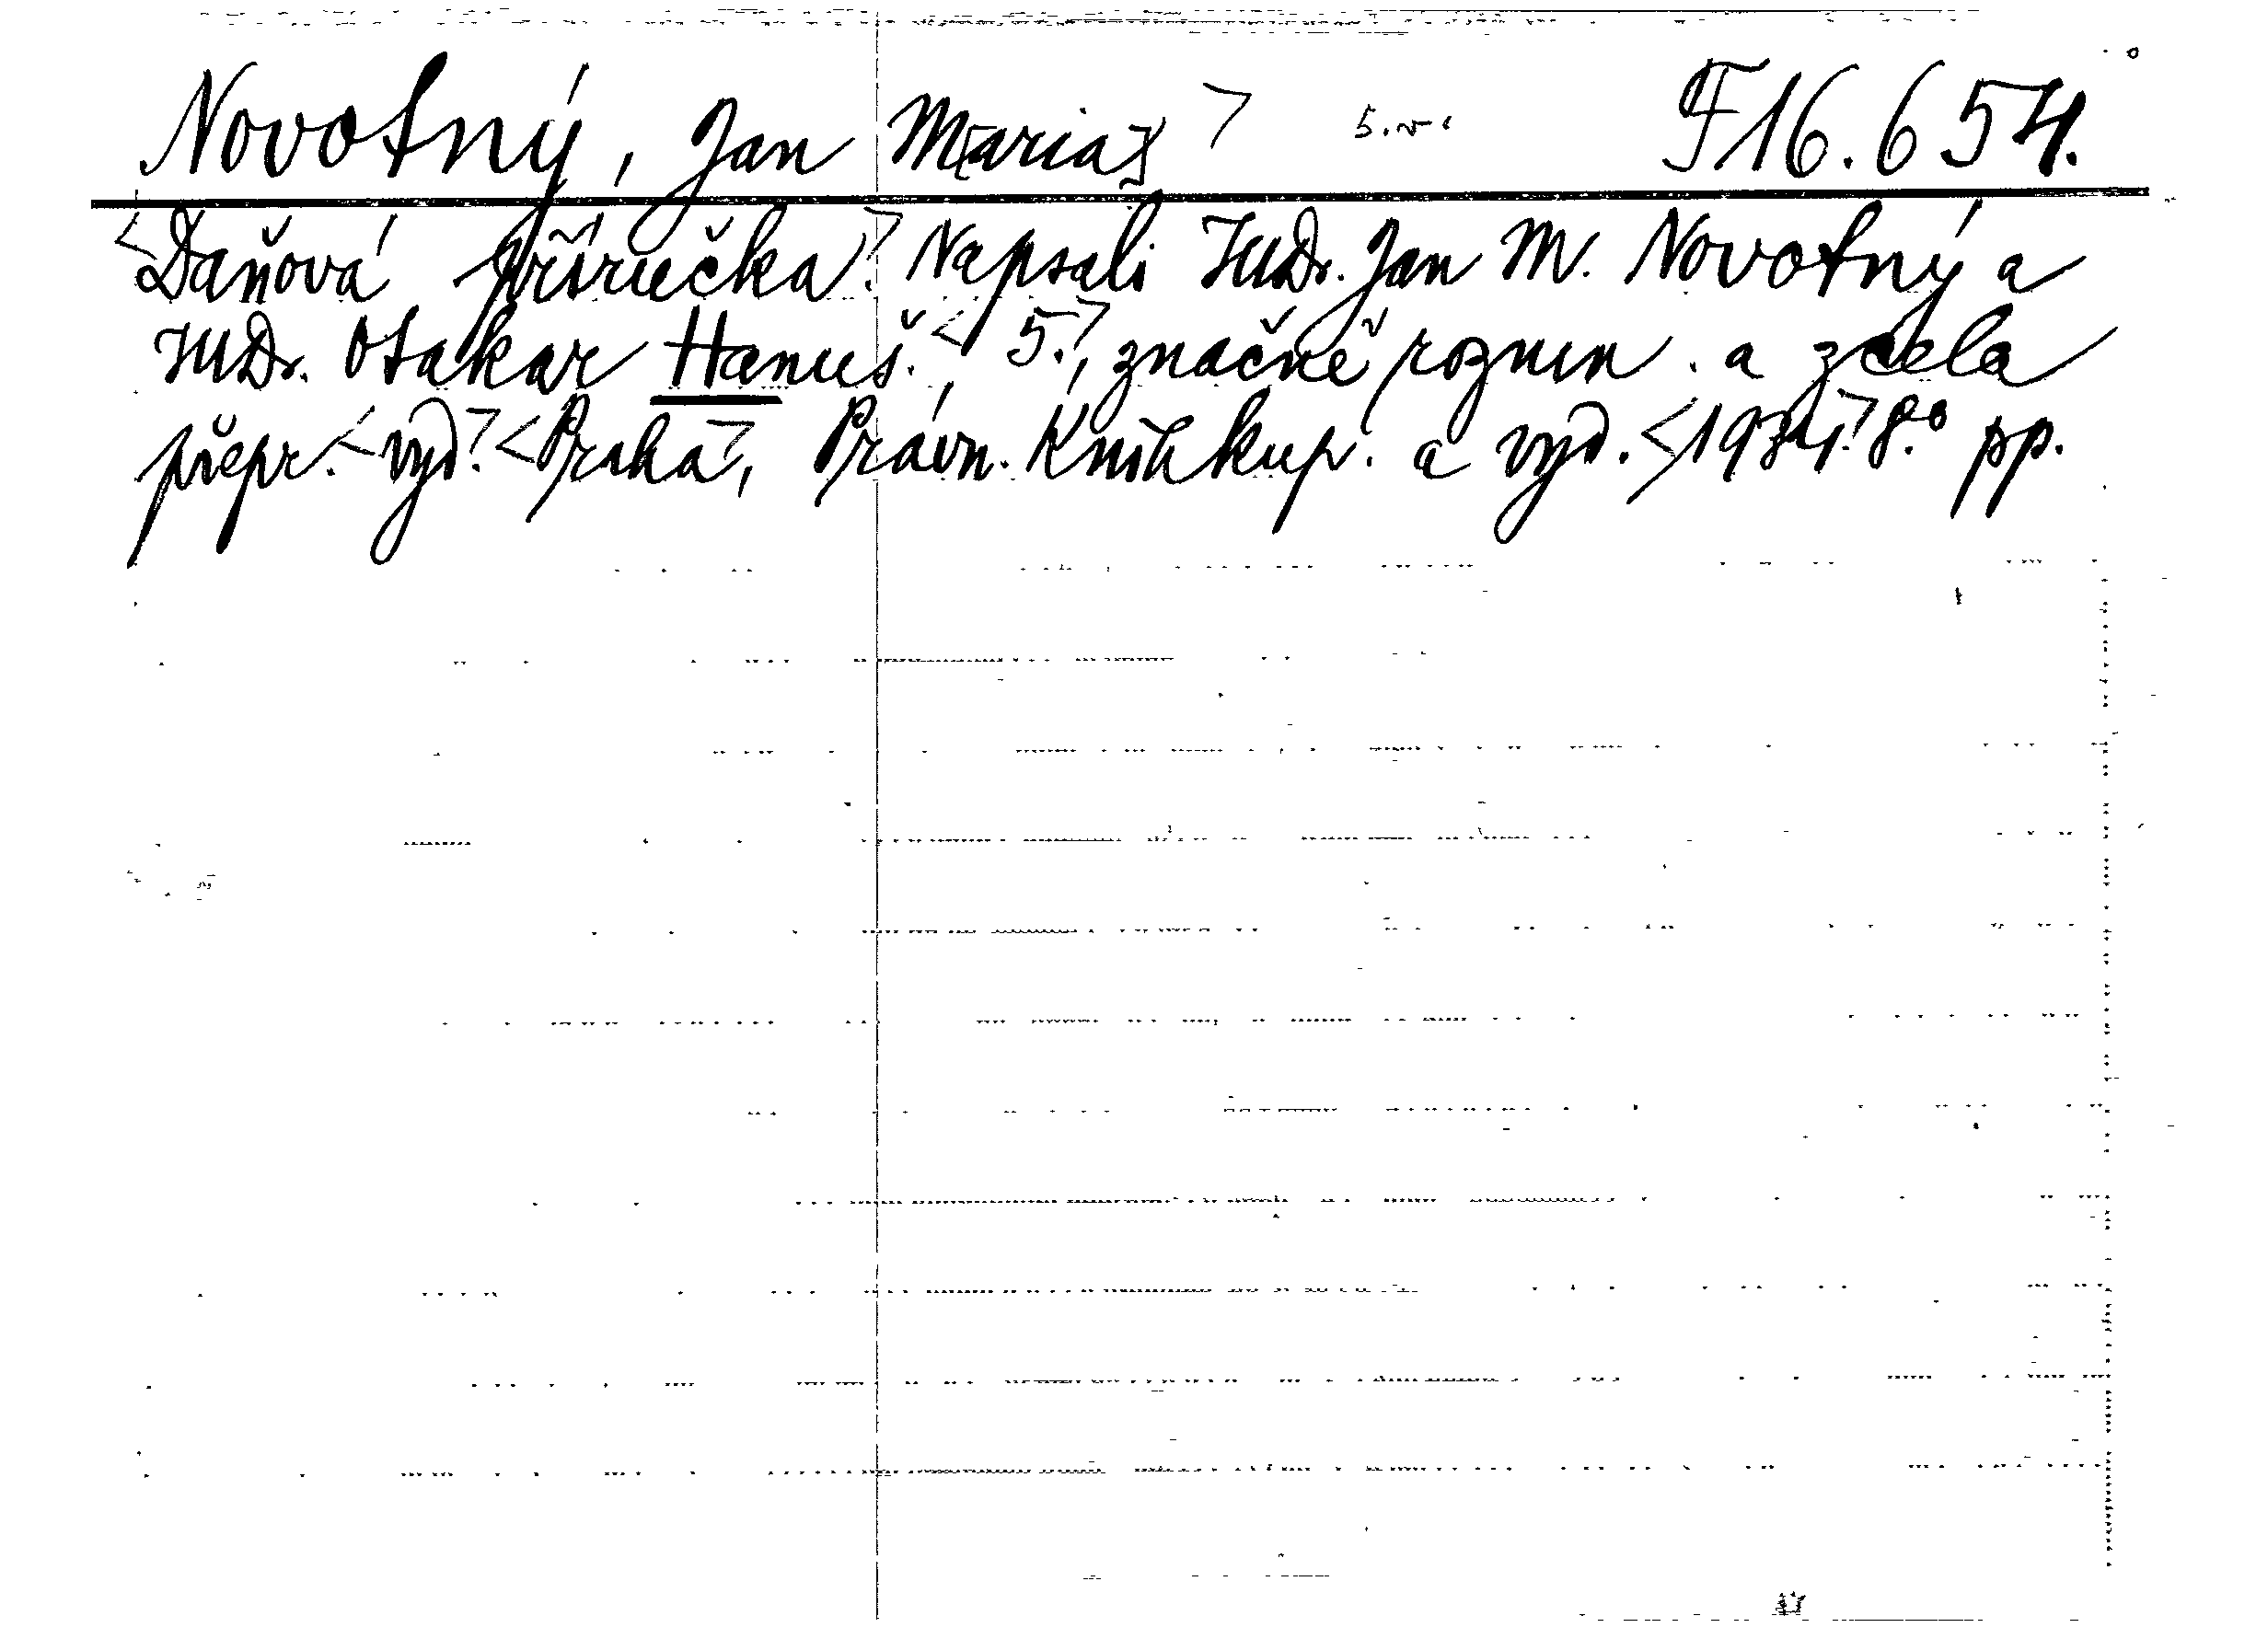 Novotný, Jan M[aria] > 5.v. F 16.654.
<Daňová příručka.> Napsali JUDr. Jan M. Novotný a
JUDr. Otakar Hanuš. <5.>, značně rozmn. a zcela
přepr. <vyd.> <Praha>, Právn. knihkup. a vyd. <1934.> 8.° pp.